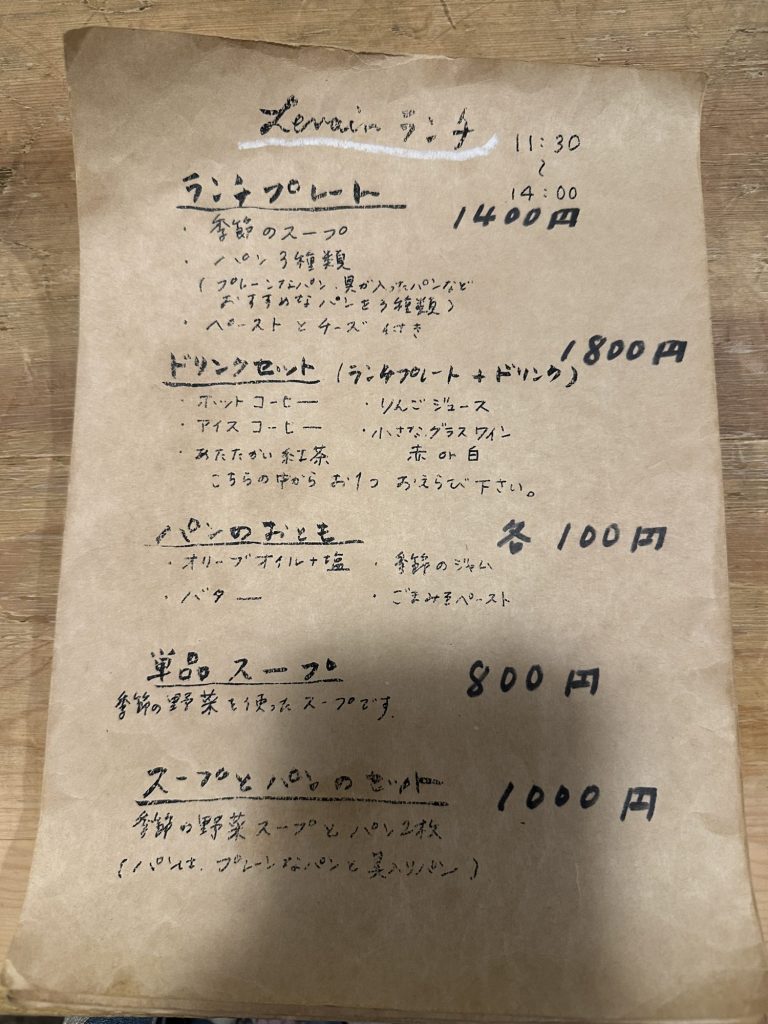 Levain ランチ
11:30
〜
14:00
ランチプレート
1400円
・季節のスープ
・パン3種類
(プレーンなパン、具が入ったパンなど
おすすめなパンを3種類)
・ペーストとチーズ付き
ドリンクセット (ランチプレート + ドリンク)
1800円
・ホットコーヒー ・りんごジュース
・アイスコーヒー ・小さなグラスワイン
・あたたかい紅茶 赤 or 白
こちらの中から お1つ おえらび下さい。
パンのおとも 各 100円
・オリーブオイル+塩 ・季節のジャム
・バター ・ごまみそペースト
単品スープ 800円
季節の野菜を使ったスープです.
スープとパンのセット 1000円
季節の野菜スープとパン2枚
(パンは、プレーンなパンと具入りパン)